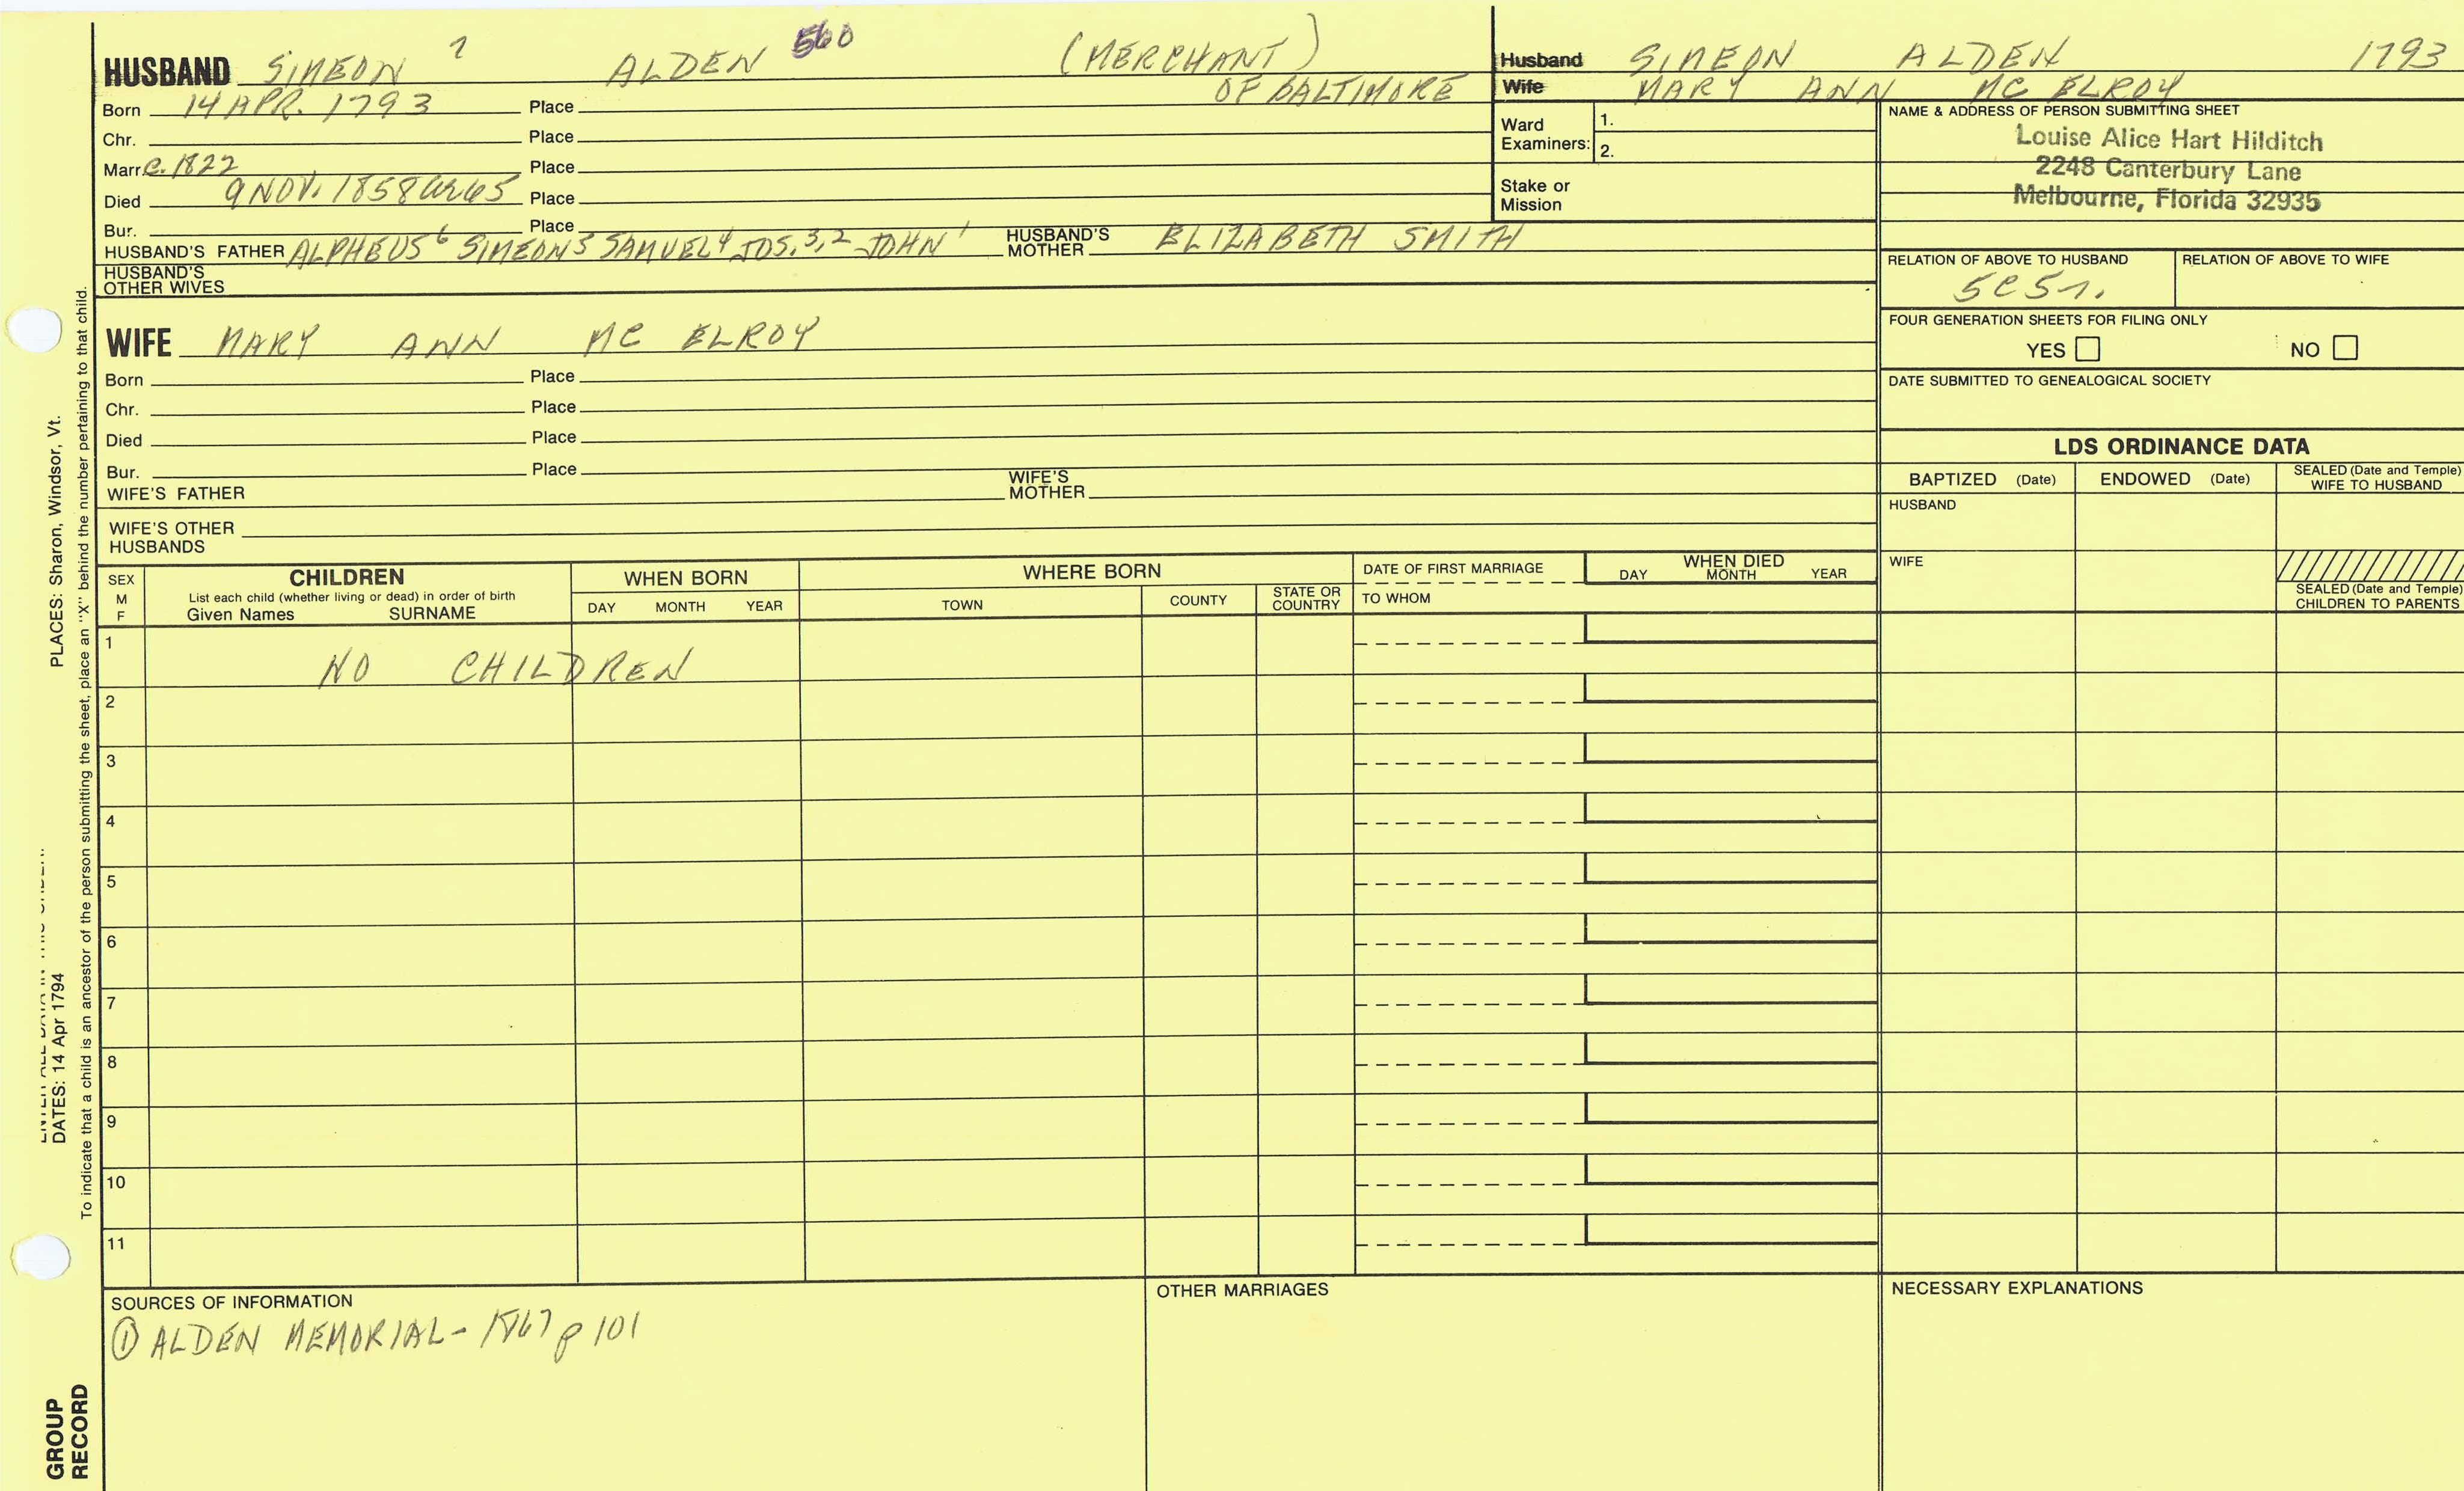 HUSBAND SIMEON 7 ALDEN 560 (MERCHANT) OF BALTIMORE
Born 14 APR. 1793 Place
Chr. Place
Marr. C. 1822 Place
Died 9 NOV. 1858 Place
Bur. Place
HUSBAND'S FATHER ALPHEUS 6 SIMEON 5 SAMUEL 4 JOS. 3, 2 JOHN 1 HUSBAND'S MOTHER ELIZABETH SMITH
HUSBAND'S OTHER WIVES
WIFE MARY ANN MC ELROY
Born Place
Chr. Place
Died Place
Bur. Place
WIFE'S FATHER WIFE'S MOTHER
WIFE'S OTHER HUSBANDS
Husband SIMEON ALDEN 1793
Wife MARY ANN MC ELROY
Ward Examiners: 1.
2.
Stake or Mission
NAME & ADDRESS OF PERSON SUBMITTING SHEET
Louise Alice Hart Hilditch
2248 Canterbury Lane
Melbourne, Florida 32935
RELATION OF ABOVE TO HUSBAND RELATION OF ABOVE TO WIFE
FOUR GENERATION SHEETS FOR FILING ONLY
YES NO
DATE SUBMITTED TO GENEALOGICAL SOCIETY
LDS ORDINANCE DATA
BAPTIZED (Date) ENDOWED (Date) SEALED (Date and Temple) WIFE TO HUSBAND
HUSBAND
WIFE
SEALED (Date and Temple) CHILDREN TO PARENTS
SEX M F
CHILDREN
List each child (whether living or dead) in order of birth
Given Names SURNAME
WHEN BORN
DAY MONTH YEAR
WHERE BORN
TOWN COUNTY STATE OR COUNTRY
DATE OF FIRST MARRIAGE
TO WHOM
WHEN DIED
DAY MONTH YEAR
1 NO CHILDREN
2
3
4
5
6
7
8
9
10
11
SOURCES OF INFORMATION
① ALDEN MEMORIAL - 1867 p 101
OTHER MARRIAGES
NECESSARY EXPLANATIONS
PLACES: Sharon, Windsor, Vt.
DATES: 14 Apr 1794
To indicate that a child is an ancestor of the person submitting the sheet, place an "X" behind the number pertaining to that child.
GROUP
RECORD